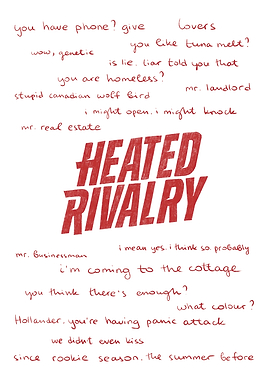 you have phone? give
lovers
you like tuna melt?
wow, genetic
is lie. liar told you that
you are homeless?
mr. landlord
stupid canadian wolf bird
i might open. i might knock
mr. real estate
HEATED
RIVALRY
i mean yes. i think so. probably
mr. businessman
i'm coming to the cottage
you think there's enough?
what colour?
Hollander. you're having panic attack
we didn't even kiss
since rookie season. the summer before